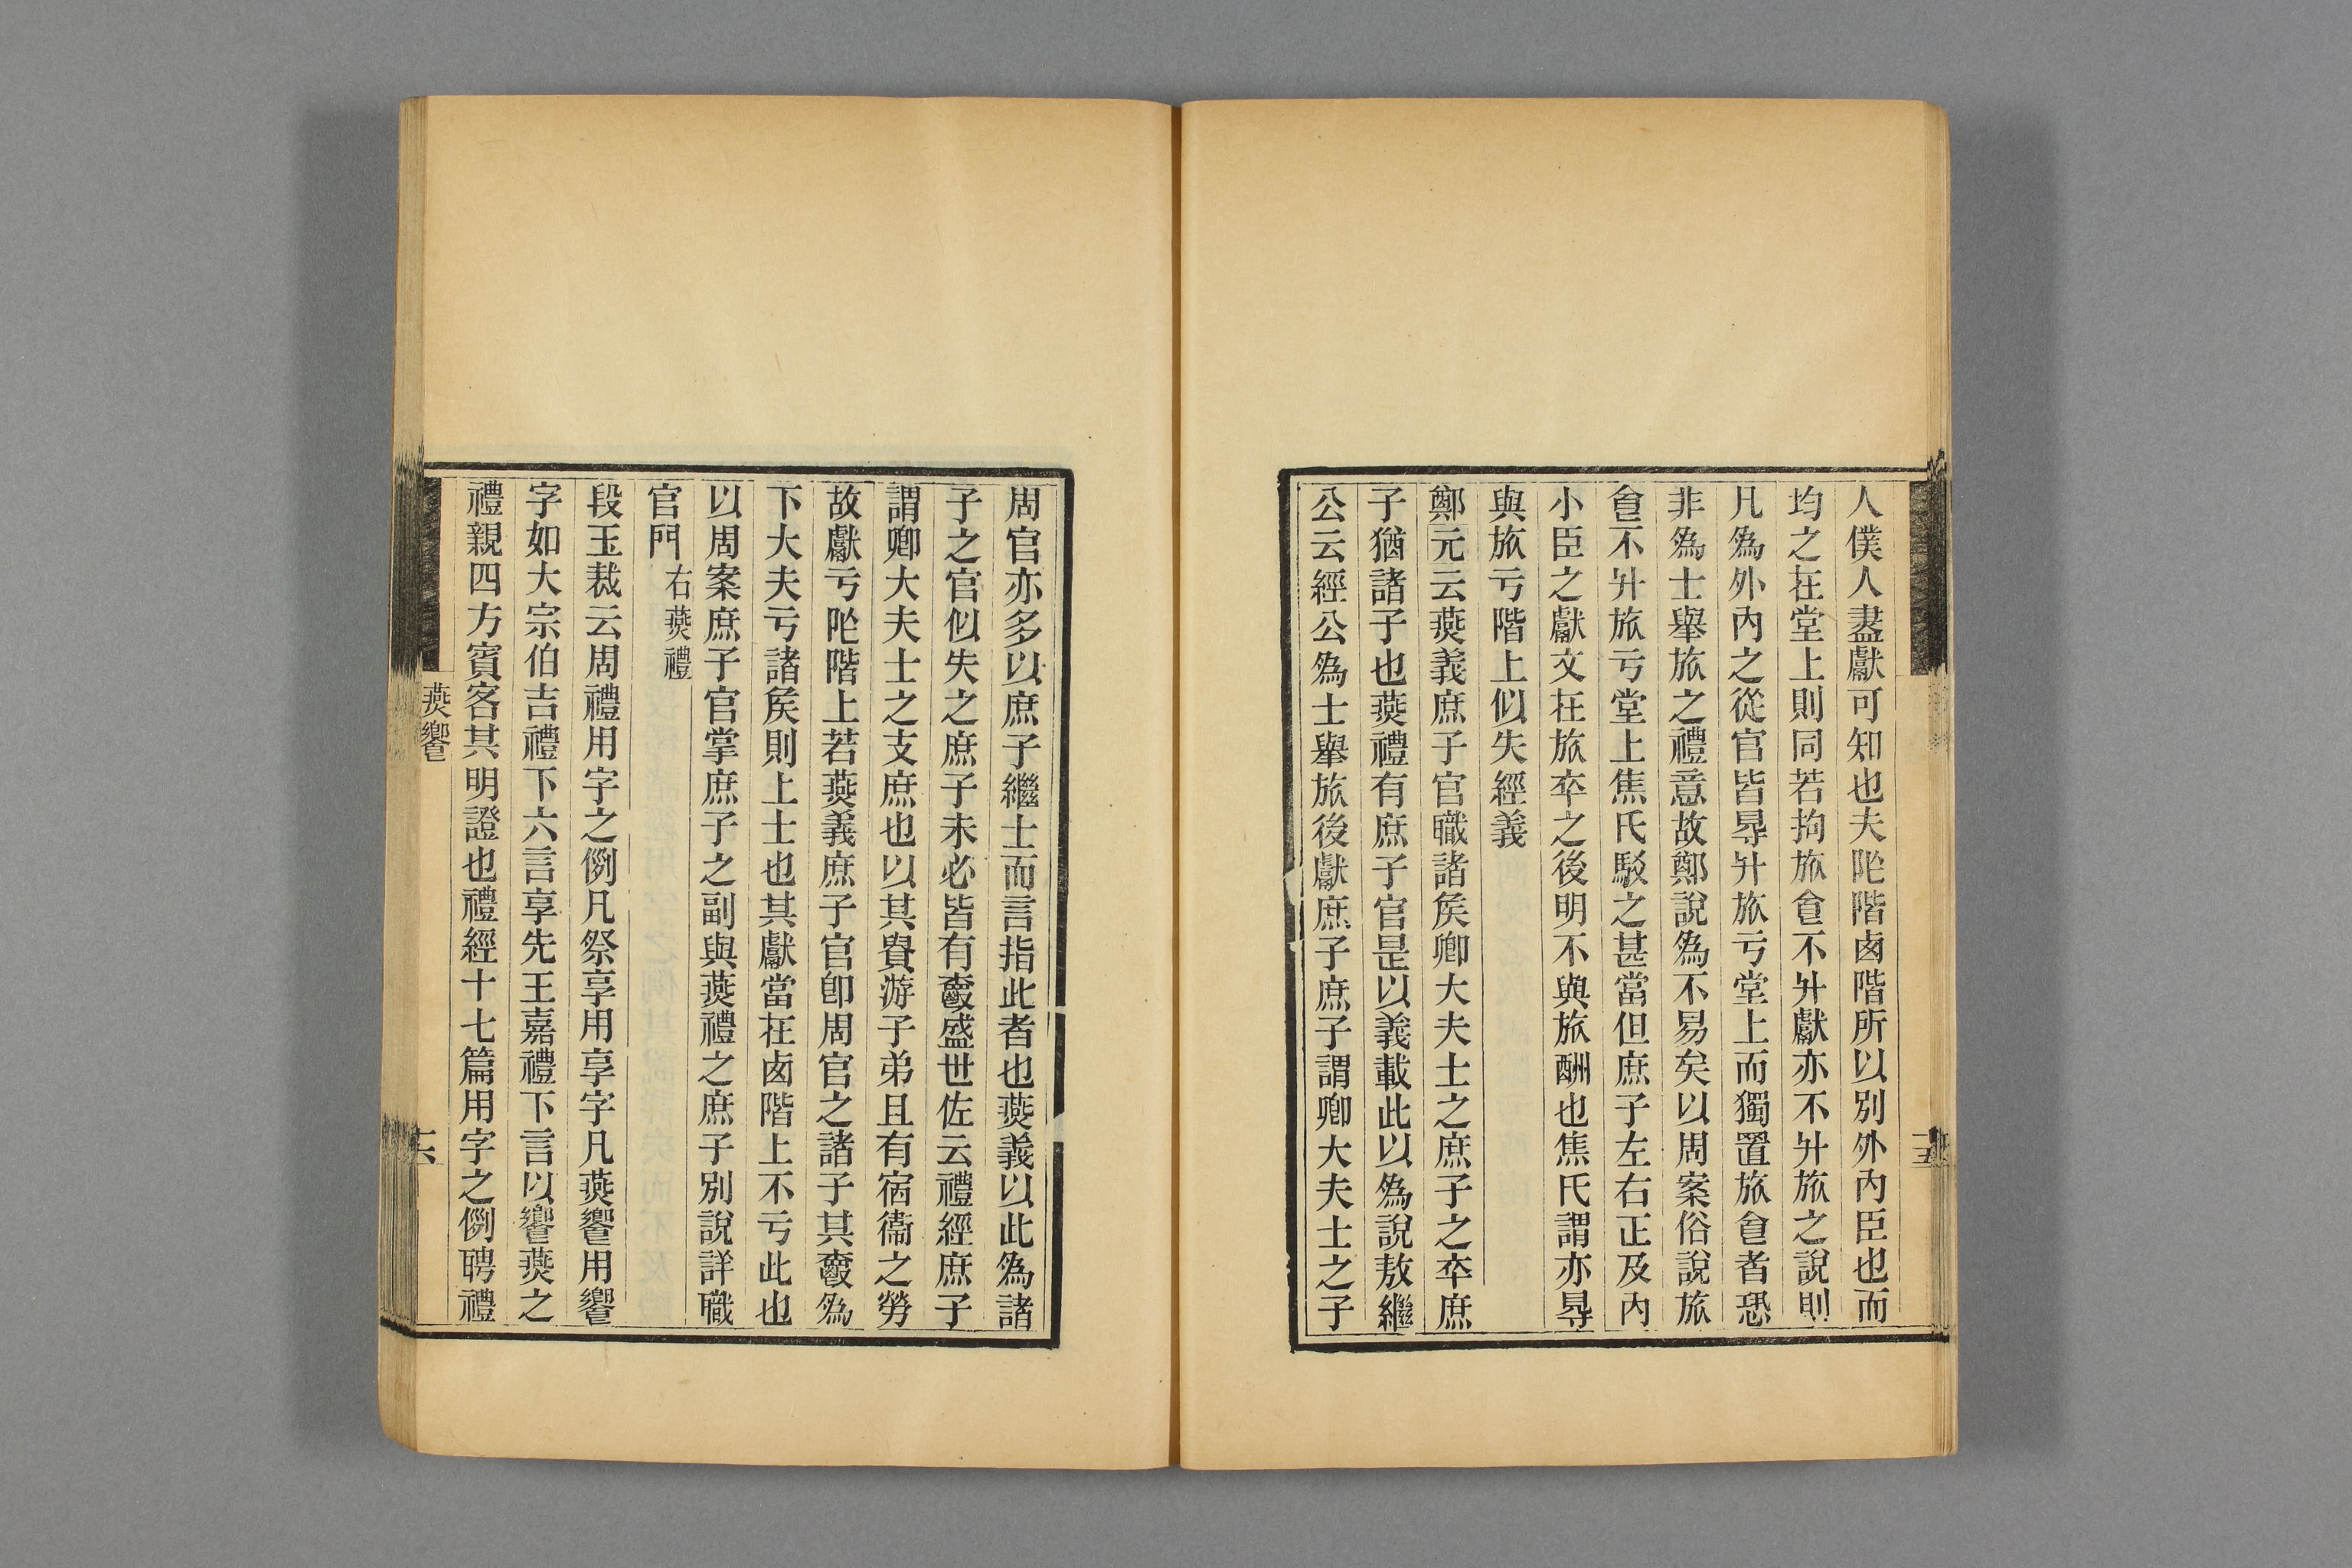 人僕人盡獻可知也夫阼階㢴階所以別外內臣也而
均之在堂上則同若拘旅食不升獻亦不升旅之說則
凡爲外內之從官皆㝵升旅亏堂上而獨置旅食者恐
非爲士舉旅之禮意故鄭說爲不易矣以周案俗說旅
食不升旅亏堂上焦氏駁之甚當但庶子左右正及內
小臣之獻文在旅卒之後明不與旅酬也焦氏謂亦㝵
與旅亏階上似失經義
鄭元云燕義庶子官職諸矦卿大夫士之庶子之卒庶
子猶諸子也燕禮有庶子官是以義載此以爲說敖繼
公云經公爲士舉旅後獻庶子庶子謂卿大夫士之子
周官亦多以庶子繼士而言指此者也燕義以此爲諸
子之官似失之庶子未必皆有爵盛世佐云禮經庶子
謂卿大夫士之支庶也以其貴游子弟且有宿衞之勞
故獻亏阼階上若燕義庶子官卽周官之諸子其爵爲
下大夫亏諸矦則上士也其獻當在㢴階上不亏此也
以周案庶子官掌庶子之副與燕禮之庶子別說詳職
官門 右燕禮
段玉裁云周禮用字之例凡祭享用享字凡燕饗用饗
字如大宗伯吉禮下六言享先王嘉禮下言以饗燕之
禮親四方賓客其明證也禮經十七篇用字之例聘禮
燕饗
十六